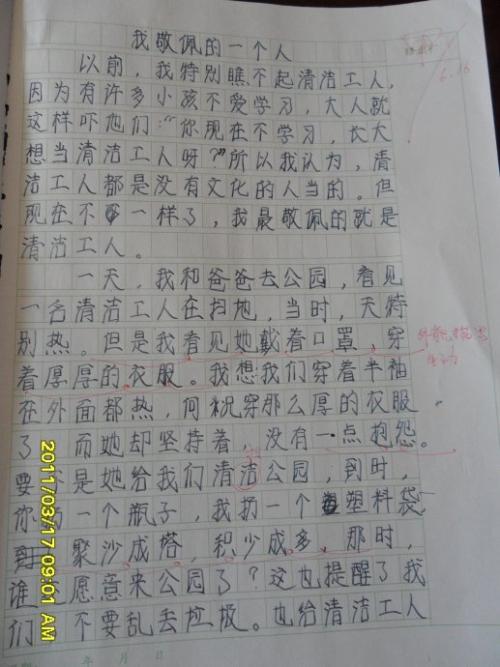 我敬佩的一个人
以前，我特别瞧不起清洁工人，
因为有许多小孩不爱学习，大人就
这样吓他们："你现在不学习，长大
想当清洁工人呀？"所以我认为，清
洁工人都是没有文化的人当的。但
现在不一样了，我最敬佩的就是
清洁工人。
一天，我和爸爸去公园，看见
一名清洁工人在扫地，当时，天特
别热。但是我看见她戴着口罩，穿
着厚厚的衣服。我想我们穿着半袖
在外面都热，何况穿那么厚的衣服
了 而她却坚持着，没有一点抱怨。
要不是她给我们清洁公园，到时，
你扔一个瓶子，我扔一个塑料袋，
聚沙成塔，积少成多，那时，
谁还愿意来公园了？这也提醒了我
们 不要乱丢垃圾。也给清洁工人
年 月 日
6.16
2011/03/17 09:01 AM